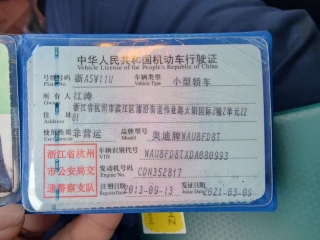 中华人民共和国机动车行驶证
Vehicle License of the People's Republic of China
号牌号码 浙A5W11U 车辆类型 小型轿车
Plate No. Vehicle Type
所有人 江涛
Owner
住址 浙江省杭州市滨江区浦沿街道伟业路太阳国际2幢2单元22
Address 01
使用性质 非营运 品牌型号 奥迪牌WAU8FD8T
Use Character Model
浙江省杭州
市公安局交
通警察支队
车辆识别代号 WAU8FD8TXDA080993
VIN
发动机号码 CDN352817
Engine No.
注册日期 2013-09-13 发证日期 2021-03-09
Register Date Issue Date